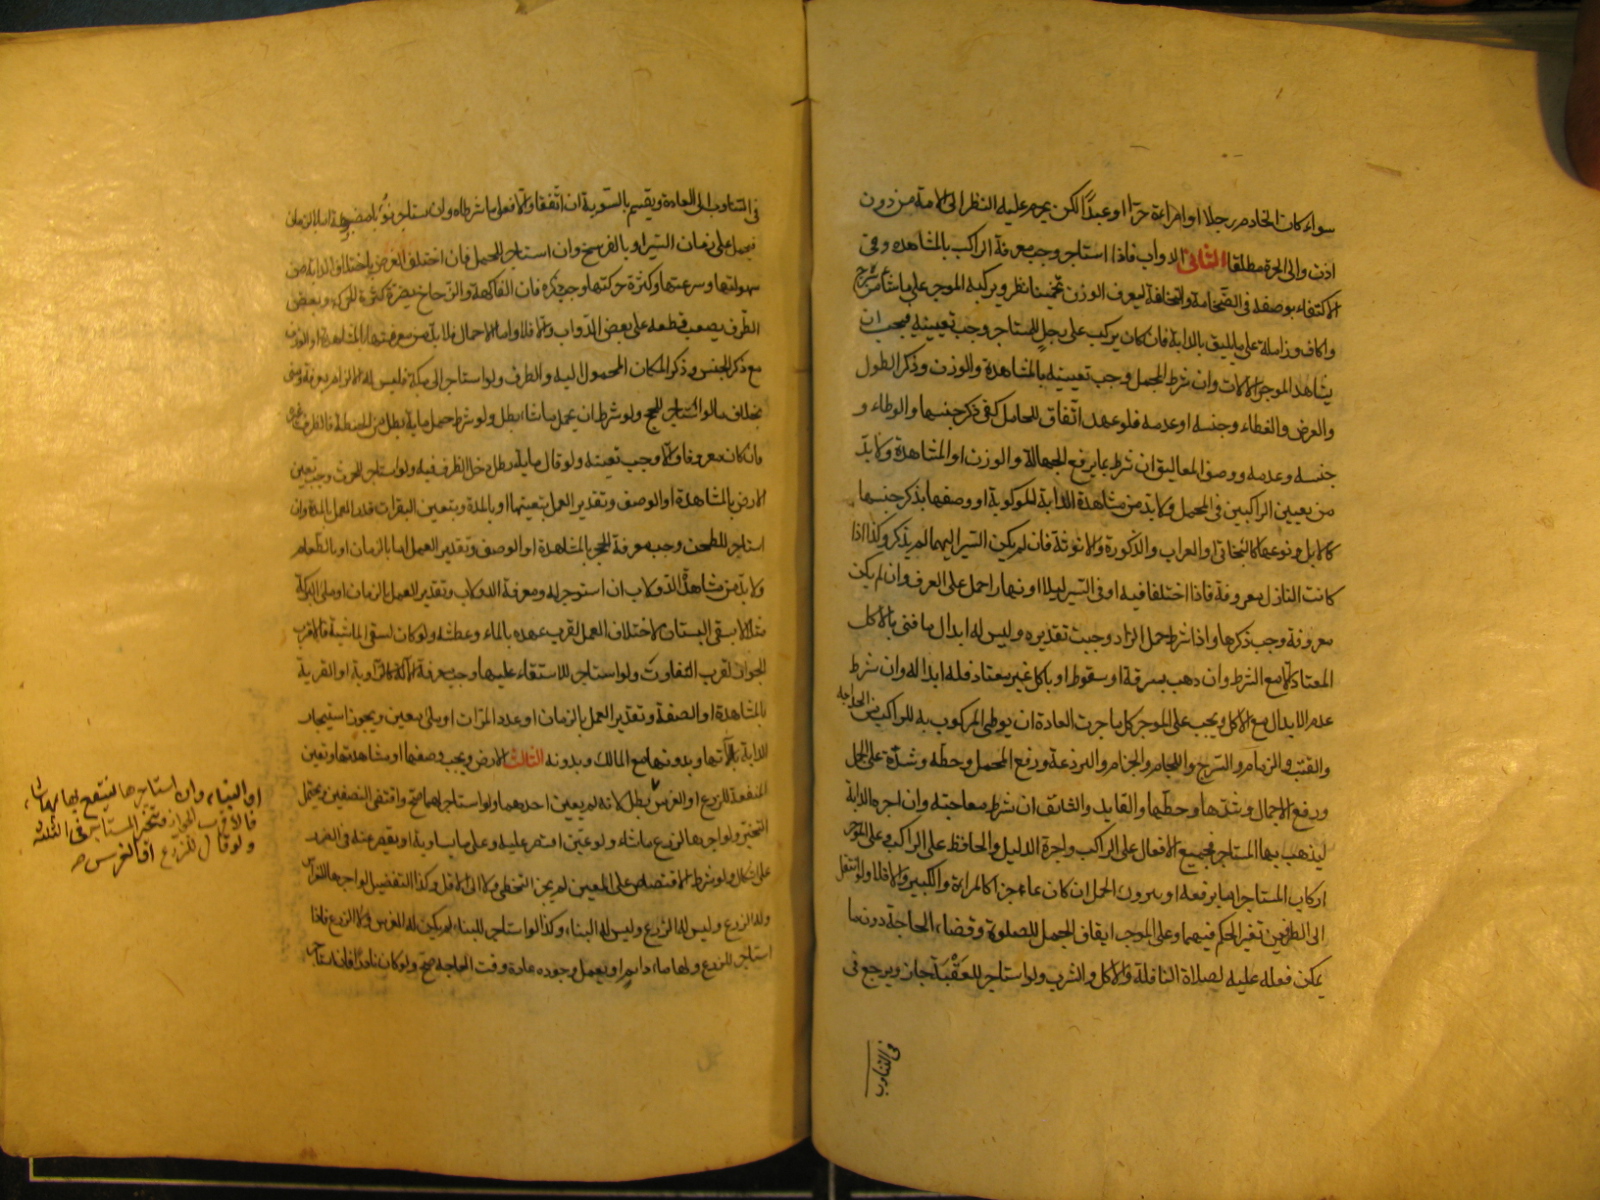 سواء كان الخادم رجلا او امراءة حرّا او عبداً لكن يحرم عليه النظر الى الامة من دون
اذن والى الحرة مطلقا الثانى الدواب فاذا استاجر وجب معرفة الراكب بالمشاهده وفى
الاكتفاء بوصفه فى الضخامة والنحافة ليعرف الوزن تخمينا نظر ويركبه الموجر على ماشاء من سرج
واكاف وزاملة على ما يليق بالدابة فان كان يركب على رحل للمستاجر وجب تعيينه فيجب ان
يشاهد الموجر الالات وان شرط المحمل وجب تعيينه بالمشاهدة والوزن وذكر الطول
والعرض والغطاء وجنسه او عدمه فلو عهد اتفاق المحامل كفى ذكر جنسها والوطاء و
جنسه وعدمه ووصف المعاليق ان شرط بما يرفع الجهالة والوزن او المشاهدة ولا بد
من تعيين الراكبين فى المحمل ولا بد من مشاهدة الدابة المركوبة او وصفها بذكر جنسها
كالابل ونوعها كالبخاتى او العراب والذكورة والانوثة فان لم يكن السير اليهما لم يذكر وكذا اذا
كانت المنازل معروفة فاذا اختلفا فيه او فى السير ليلا او نهارا حمل على العرف وان لم يكن
معروفة وجب ذكرها واذا شرط حمل الزاد وجبت تقديره وليس له ابدال ما فنى بالاكل
المعتاد الا مع الشرط وان ذهب بسرقة او سقوط او باكل غير معتاد فله ابداله وان شرط
عدم الابدال مع الاكل ويجب على الموجر كل ما جرت العادة ان يوطى المركوب به للراكب من الحداجه
والقتب والزمام والسرج واللجام والحزام والبرذعة ورفع المحمل وحطه وشده على الجمل
ورفع الاحمال وشدها وحطها والقايد والسائق ان شرط مصاحبته وان اجره الدابة
ليذهب بها المستاجر فجميع الافعال على الراكب واجرة الدليل والحافظ على الراكب وعلى الموجر
اركاب المستاجر اما برفعه او ببروك الجمل ان كان عاجزا كالمراءة والكبير والا فلا ولو انتقل
الى الطرفين تغير الحكم فيهما وعلى الموجر ايقاف الجمل للصلوة وقضاء الحاجة دون ما
يمكن فعله عليه لصلاة النافلة والاكل والشرب ولو استاجر للعقبة جاز ويرجع فى
فى التناوب
فى التناوب الى العادة ويقسم بالسوية ان اتفقا والا فعلى ما شرطاه وان استاجر نوبا مضبوطة اما بالزمان
فيحمل على زمان السير او بالفرسخ وان استاجر للحمل فان اختلف الغرض باختلاف الدابة فى
سهولتها وسرعتها وكثرة حركتها وجب ذكره فان الفاكهة والزجاج يضره كثرة الحركة وبعض
الطرق يصعب قطعه على بعض الدواب والا فلا واما الاحمال فلا بد من معرفتها بالمشاهدة او الوزن
مع ذكر الجنس وذكر المكان المحمول اليه والطرق ولو استاجر الى مكة فليس له الزامه بعرفة ومنى
بخلاف ما لو استاجر للحج ولو شرط ان يحمل ماشاء بطل ولو شرط حمل مايه رطل من الحنطة فالظرف غيره
فان كان معروفا والا وجب تعيينه ولو قال مايه رطل دخل الظرف فيه ولو استاجر للحرث وجب تعيين
الارض بالمشاهدة او الوصف وتقدير العمل بتعيينها او بالمدة وبتعيين البقرات قدر العمل بالمدة وان
استاجر للطحن وجب معرفة الحجر بالمشاهدة او الوصف وتقدير العمل اما بالزمان او بالطعام
ولا بد من مشاهدة الدولاب ان استوجر له ومعرفة الدلاب وتقدير العمل بالزمان او ملئ البركة
مثلا لا بسقى البستان لاختلاف العمل لقرب عهده بالماء وعطشه ولو كان لسقى الماشية فالاقرب
الجواز لقرب التفاوت ولو استاجر للاستقاء عليها وجب معرفة الالة كالراوية او القربة
بالمشاهدة او الصفة وتقدير العمل بالزمان او عدد المرات او بملئ معين ويجوز استيجار
الدابة بآلاتها وبدونها مع المالك وبدونه الثالث الارض ويجب وصفها او مشاهدتها وتعين
المنفعة للزرع او الغرس بطل لانه لم يعين احدهما ولو استاجر لهما صح واقتضى التنصيف ويحتمل
التخيير ولو اجرها لزرع ماشاء ولو عين اقتصر عليه وعلى ما يساويه او يقصر عنه فى الضرر
على اشكال ولو شرط الاقتصار على المعين لم يجز التخطى ولا الى الاقل وكذا التفصيل لو اجرها للغراس
وله الزرع وليس له الزرع وليس له البناء وكذا لو استاجر للبناء لم يكن له الغرس ولا الزرع فاذا
استاجر للزرع ولها ماء دايم او يعلم وجوده عادة وقت الحاجة صح ولو كان نادرا فان استاجر
او البناء وان استاجرها لينتفع بها بهما
فالاقرب الجواز فيتخير المستاجر فى الثلثة
ولو قال للزرع او الغرس صح